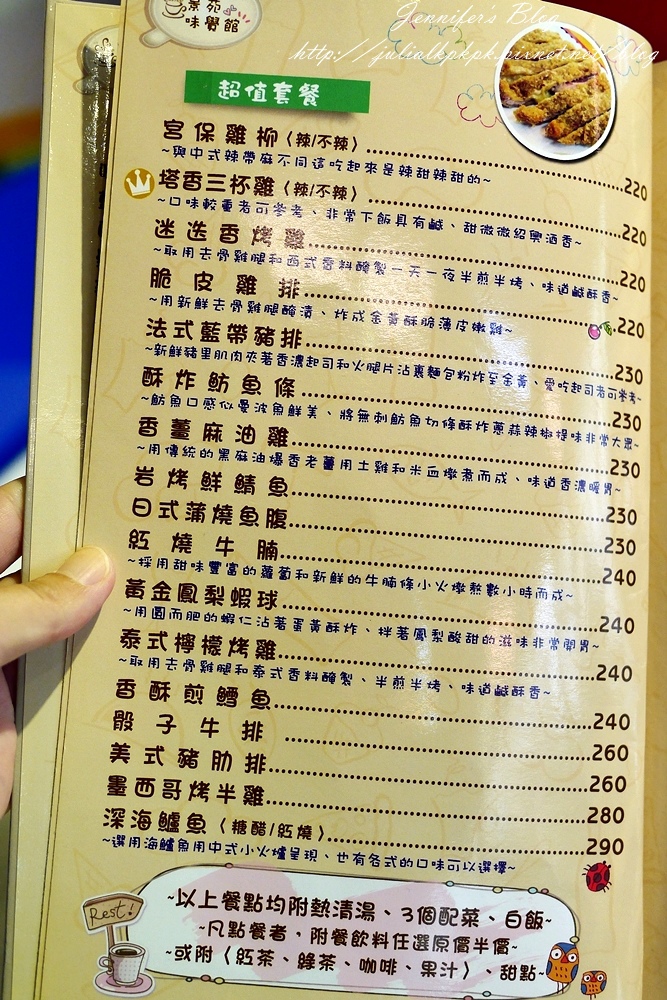 景苑
味覺館
Jennifer's Blog
http://julialkpkpk.pixnet.net/blog
超值套餐
宮保雞柳〈辣/不辣〉 220
~與中式辣帶麻不同這吃起來是辣甜辣甜的~
塔香三杯雞〈辣/不辣〉 220
~口味較重者可參考、非常下飯具有鹹、甜微微紹興酒香~
迷迭香烤雞 220
~取用去骨雞腿和西式香料醃製一天一夜半煎半烤、味道鹹酥香~
脆皮雞排 220
~用新鮮去骨雞腿醃漬、炸成金黃酥脆薄皮嫩雞~
法式藍帶豬排 230
~新鮮豬里肌肉夾著香濃起司和火腿片沾裹麵包粉炸至金黃、愛吃起司者可參考~
酥炸魴魚條 230
~魴魚口感似曼波魚鮮美、將無刺魴魚切條酥炸蔥蒜辣椒提味非常大眾~
香薑麻油雞 230
~用傳統的黑麻油爆香老薑用土雞和米血燉煮而成、味道香濃暖胃~
岩烤鮮鯖魚 230
日式蒲燒魚腹 230
紅燒牛腩 240
~採用甜味豐富的蘿蔔和新鮮的牛腩條小火燉熬數小時而成~
黃金鳳梨蝦球 240
~用圓而肥的蝦仁沾著蛋黃酥炸、拌著鳳梨酸甜的滋味非常開胃~
泰式檸檬烤雞 240
~取用去骨雞腿和泰式香料醃製、半煎半烤、味道鹹酥香~
香酥煎鱈魚 240
骰子牛排 260
美式豬肋排 260
墨西哥烤半雞 280
深海鱸魚〈糖醋/紅燒〉 290
~選用海鱸魚用中式小火爐呈現、也有各式的口味可以選擇~
Rest!
~以上餐點均附熱清湯、3個配菜、白飯~
~凡點餐者，附餐飲料任選原價半價~
~或附〈紅茶、綠茶、咖啡、果汁〉、甜點~